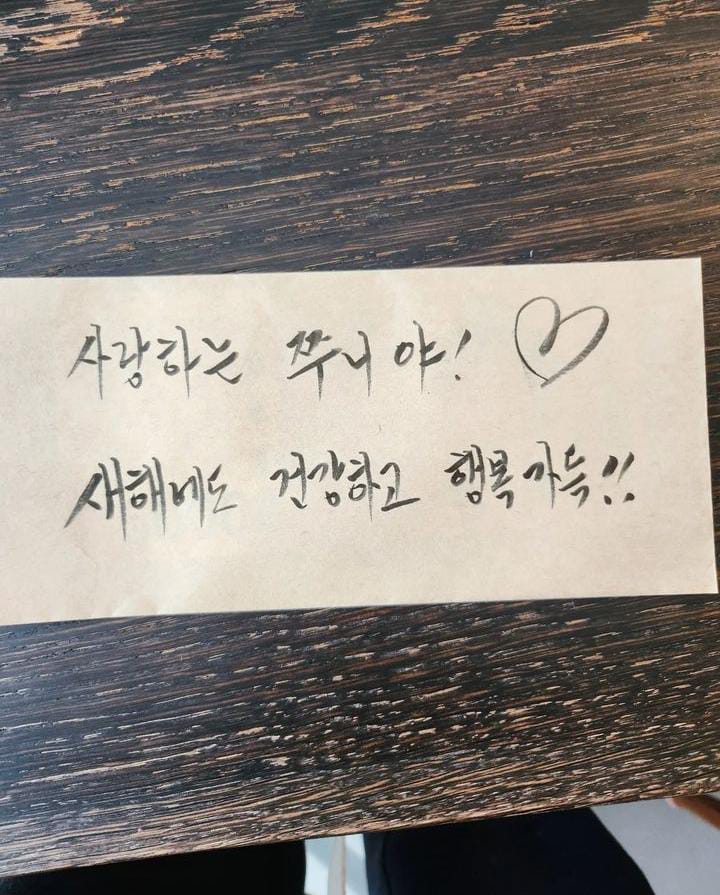 사랑하는 쭈니야! ♡
새해에도 건강하고 행복가득!!